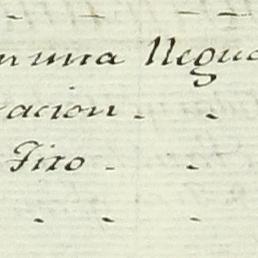 n una Regu
acion - -
Tiro - -